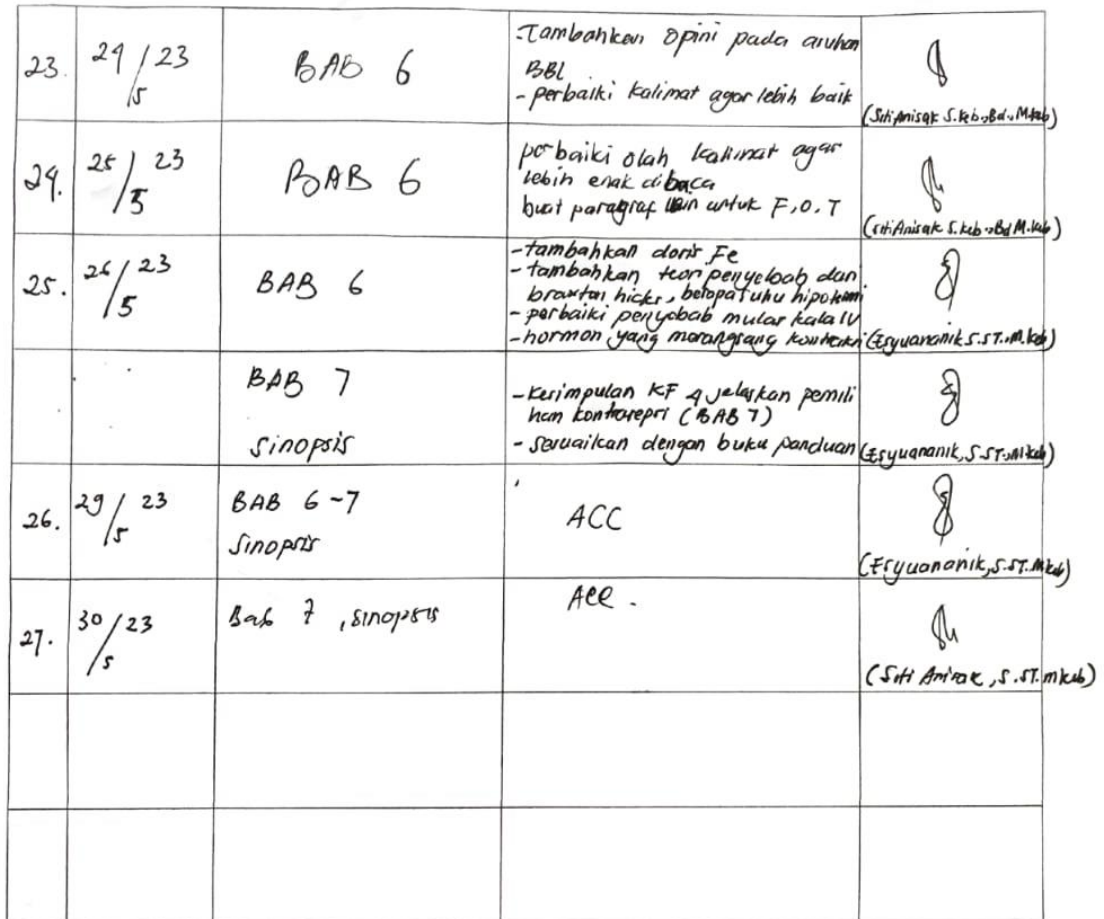 23. 24/5 23 BAB 6
- Tambahkan Opini pada asuhan
BBL
- perbaiki kalimat agar lebih baik
(Siti Anisak S.Keb.,Bd.,M.Keb)
24. 25/5 23 BAB 6
perbaiki olah kalimat agar
lebih enak dibaca
buat paragraf lain untuk F,O,T
(Siti Anisak S.Keb.,Bd M.Keb)
25. 26/5 23 BAB 6
- tambahkan doris Fe
- tambahkan teori penyebab dari
braxton hicks, berapa suhu hipotermi
- perbaiki penyebab mulas kala IV
- hormon yang merangsang kontraksi
(Esyuananik S.ST.,M.Keb)
BAB 7
Sinopsis
- Kesimpulan KF 4 jelaskan pemili
han kontrasepsi (BAB 7)
- sesuaikan dengan buku panduan
(Esyuananik, S.ST.,M.Keb)
26. 29/5 23 BAB 6-7
Sinopsis
ACC
(Esyuananik, S.ST.M.Keb)
27. 30/5 23 Bab 7, sinopsis
Acc.
(Siti Anisak, S.ST.mkeb)